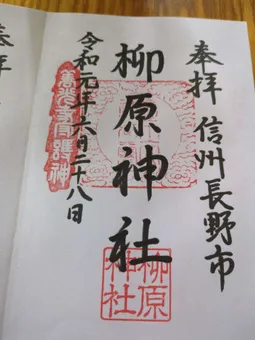 奉拝 信州長野市
柳原神社
令和元年六月二十八日
柳原
神社
奉拝